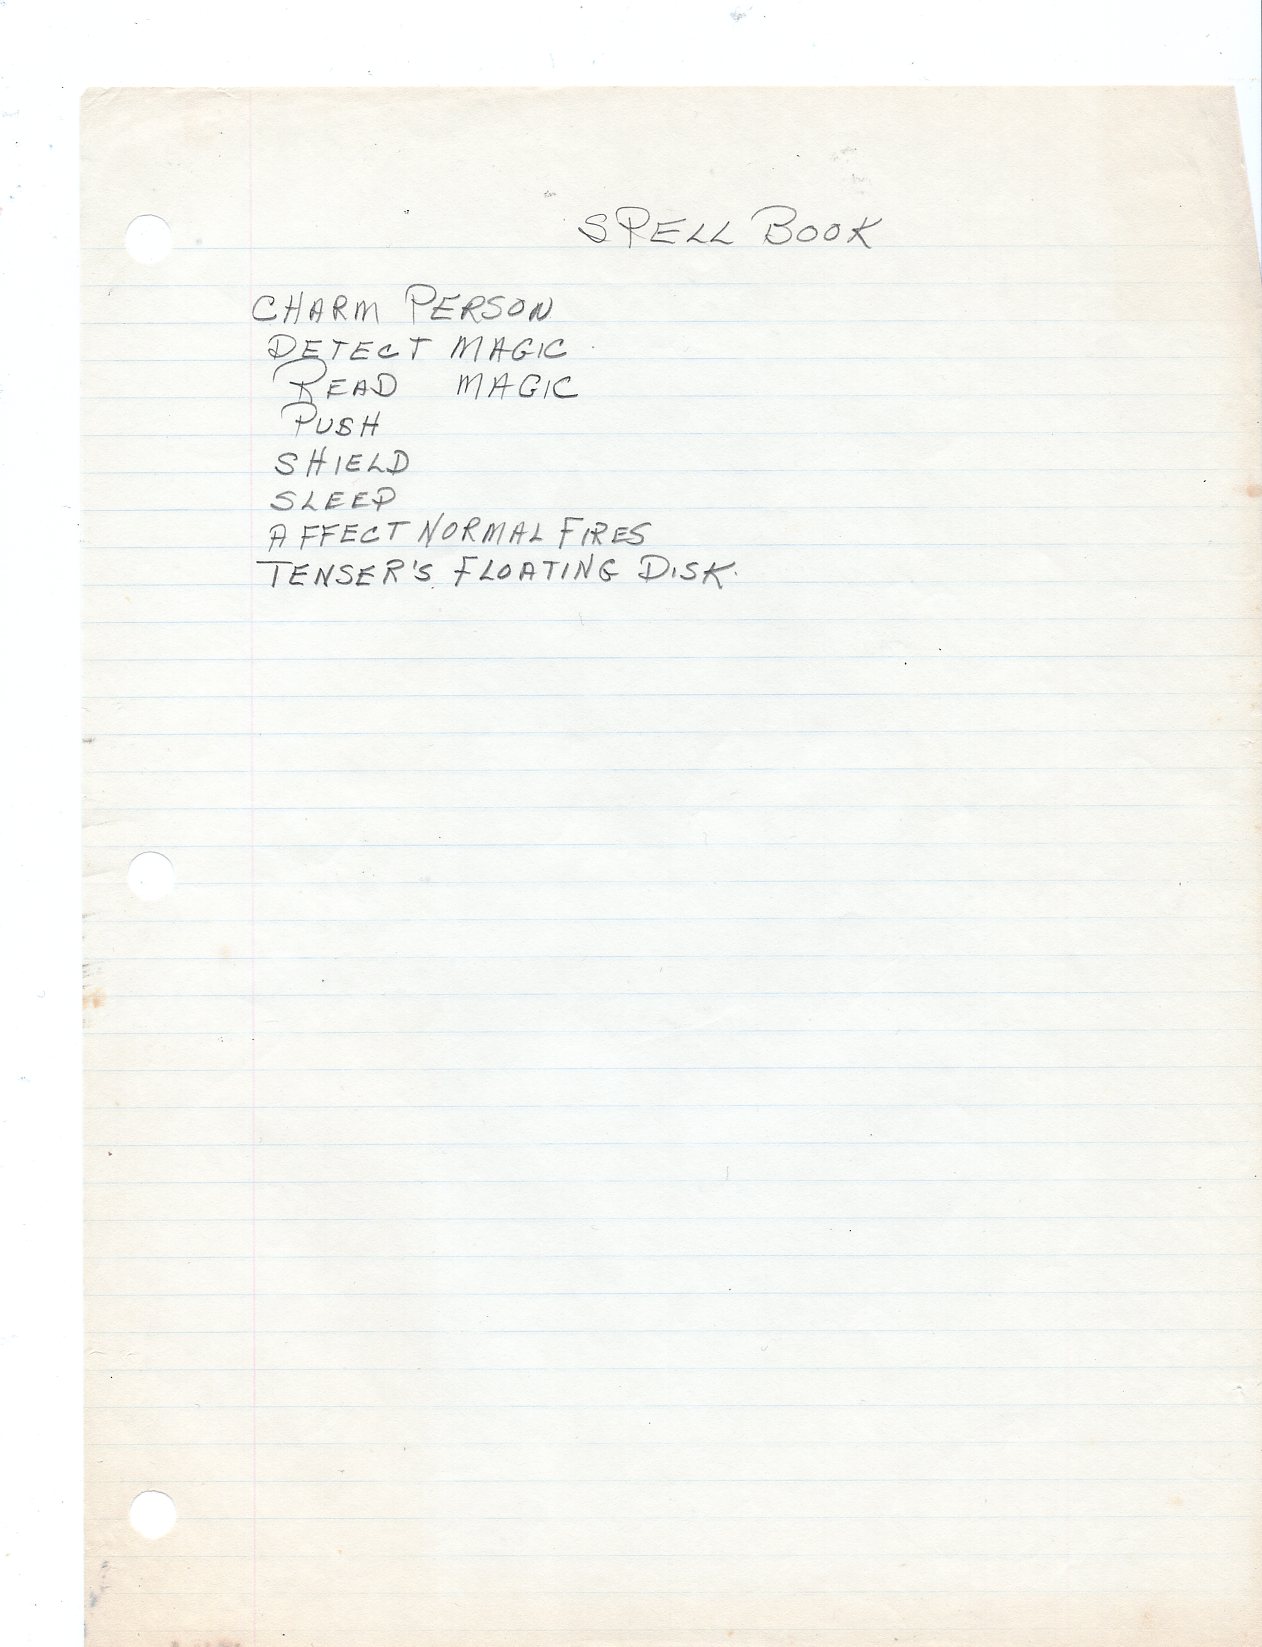 SPELL BOOK
CHARM PERSON
DETECT MAGIC
READ MAGIC
PUSH
SHIELD
SLEEP
AFFECT NORMAL FIRES
TENSER'S FLOATING DISK.